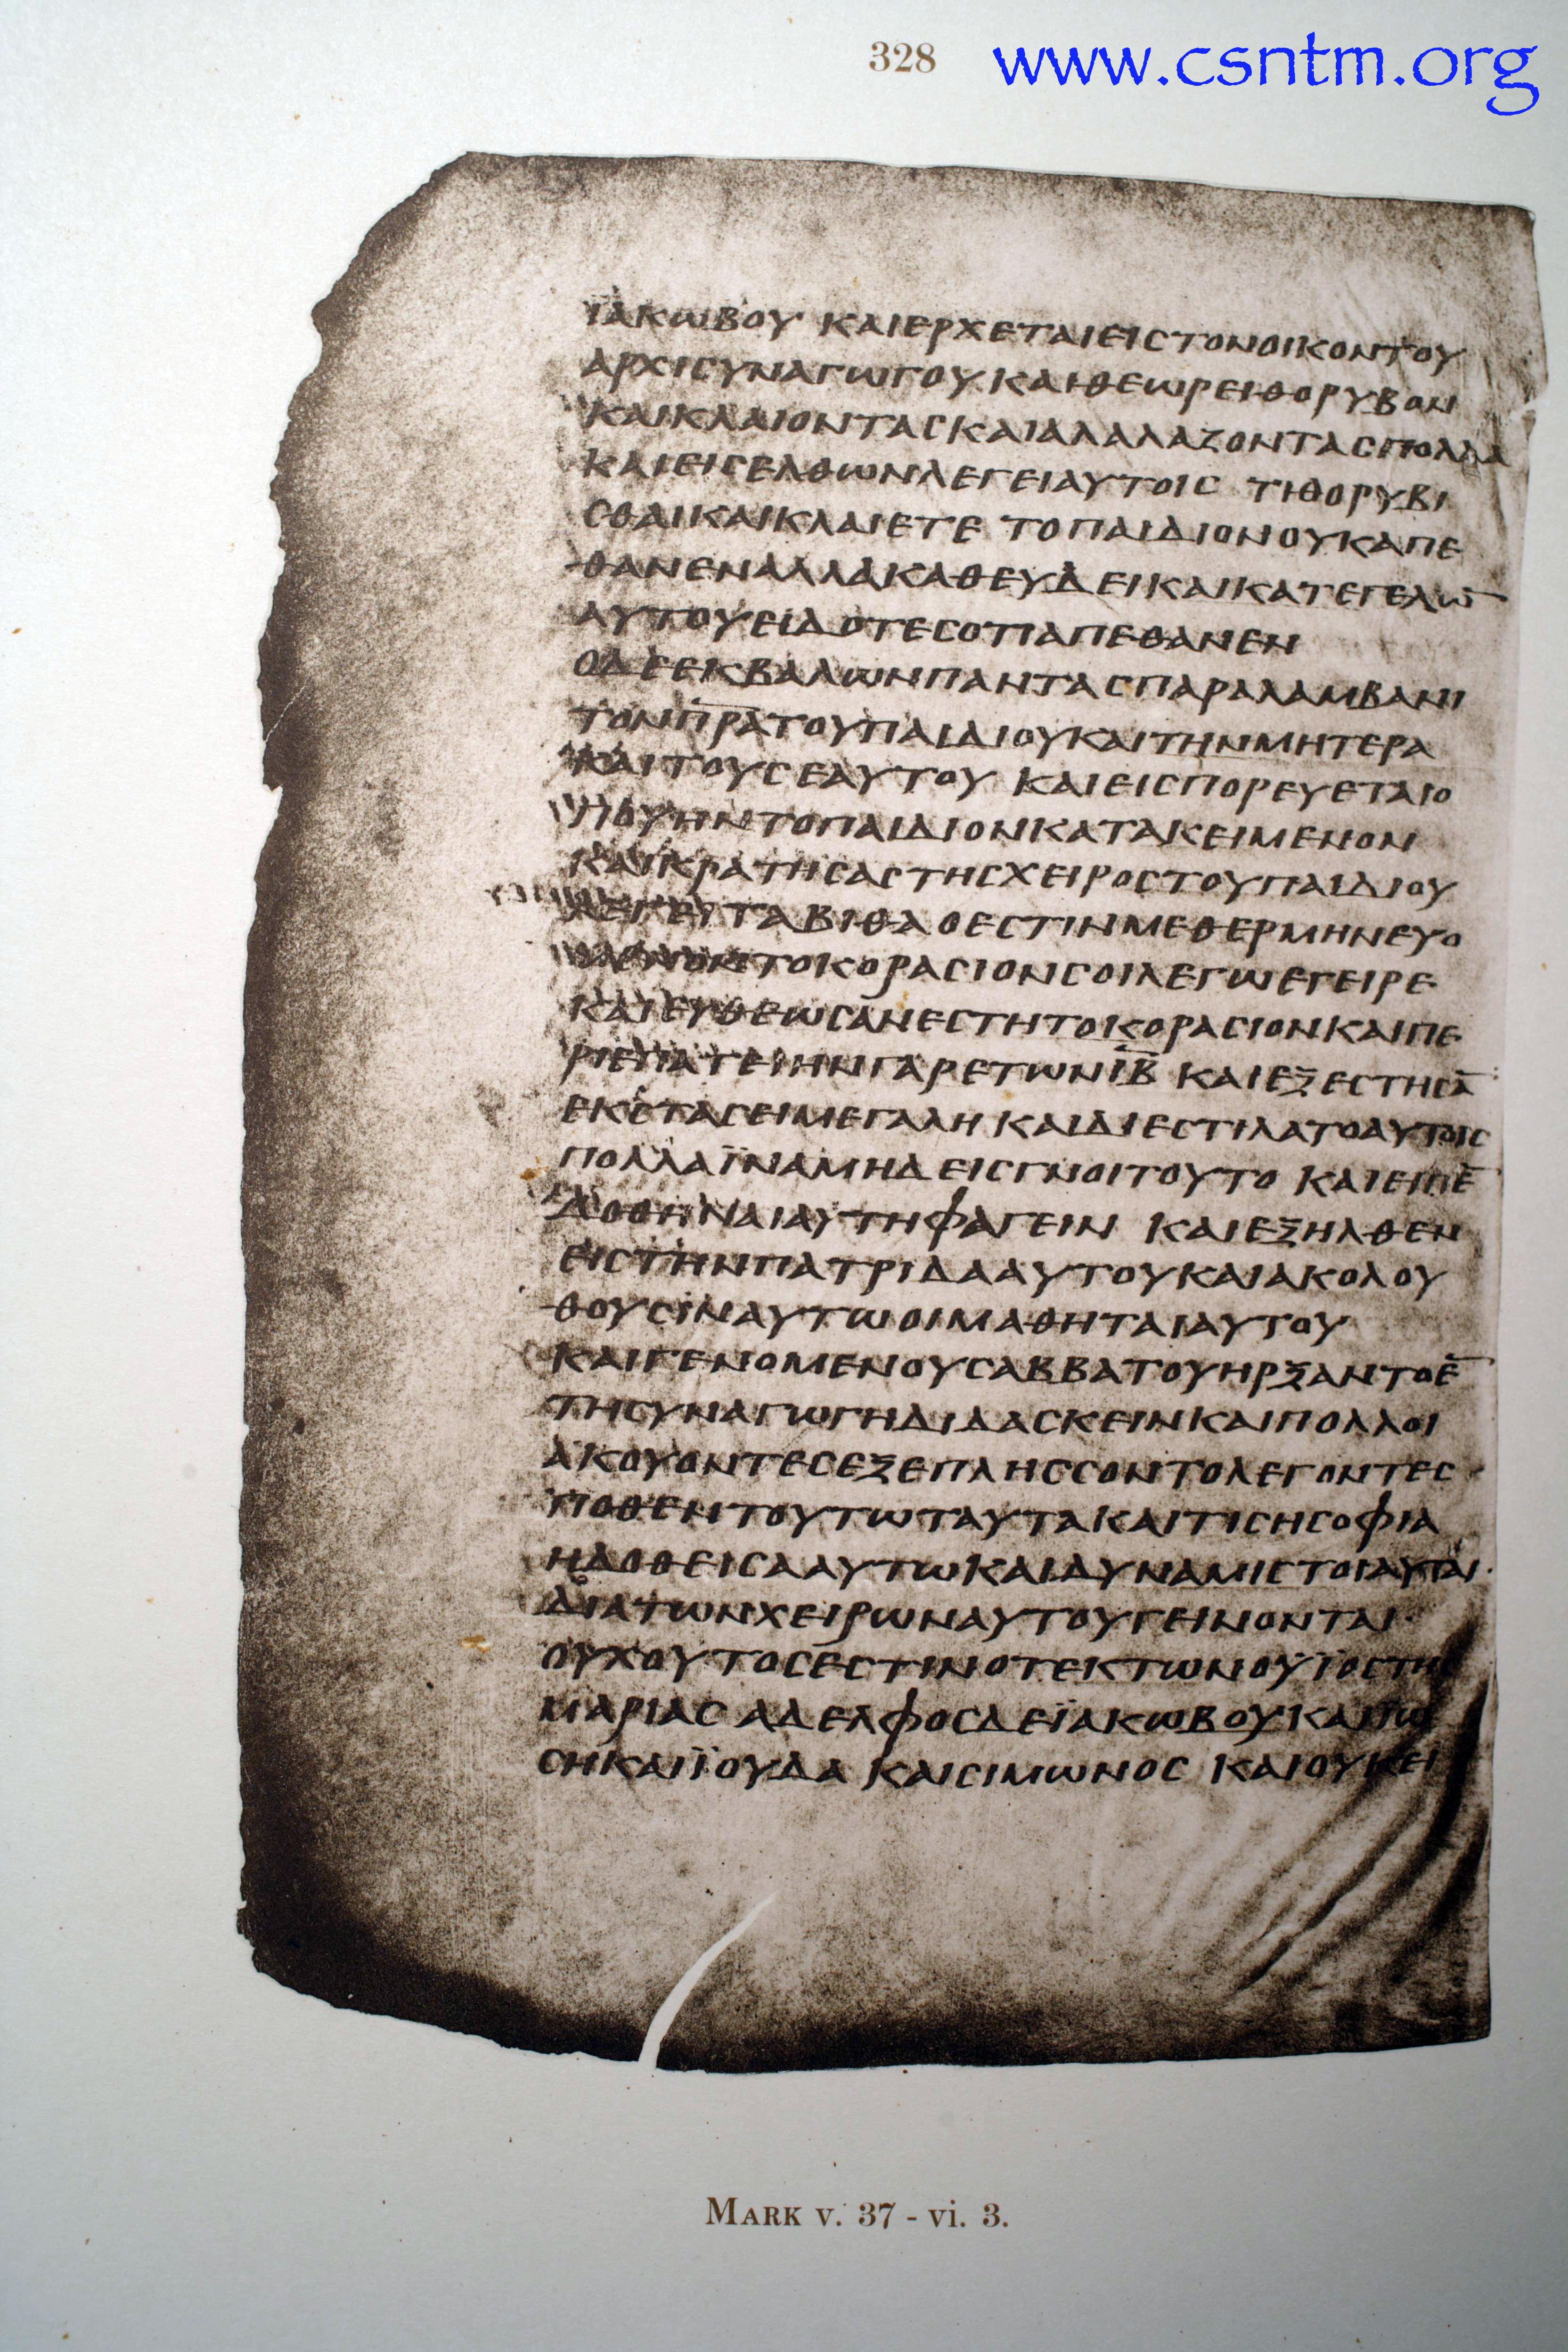 328
www.csntm.org
ΪΑΚΩΒΟΥ ΚΑΙΕΡΧΕΤΑΙΕΙΣΤΟΝΟΙΚΟΝΤΟΥ
ΑΡΧΙϹΥΝΑΓΩΓΟΥ ΚΑΙΘΕΩΡΕΙΘΟΡΥΒΟΝ
ΚΑΙΚΛΑΙΟΝΤΑϹΚΑΙΑΛΑΛΑΖΟΝΤΑϹΠΟΛΛΑ
ΚΑΙΕΙϹΕΛΘΩΝΛΕΓΕΙΑΥΤΟΙϹ ΤΙΘΟΡΥΒΙ
ϹΘΑΙΚΑΙΚΛΑΙΕΤΕ ΤΟΠΑΙΔΙΟΝΟΥΚΑΠΕ
ΘΑΝΕΝΑΛΛΑΚΑΘΕΥΔΕΙΚΑΙΚΑΤΕΓΕΛΩ̅
ΑΥΤΟΥΕΙΔΟΤΕϹΟΤΙΑΠΕΘΑΝΕΝ
ΟΔΕΕΚΒΑΛΩΝΠΑΝΤΑϹΠΑΡΑΛΑΜΒΑΝΙ
ΤΟΝΠ̅Ρ̅Α̅ΤΟΥΠΑΙΔΙΟΥΚΑΙΤΗΝΜΗΤΕΡΑ
ΚΑΙΤΟΥϹΕΑΥΤΟΥ ΚΑΙΕΙϹΠΟΡΕΥΕΤΑΙΟ
ΠΟΥΗΝΤΟΠΑΙΔΙΟΝΚΑΤΑΚΕΙΜΕΝΟΝ
ΚΑΙΚΡΑΤΗϹΑϹΤΗϹΧΕΙΡΟϹΤΟΥΠΑΙΔΙΟΥ
ΛΕΓΕΙ ΤΑΒΙΘΑΟΕϹΤΙΝΜΕΘΕΡΜΗΝΕΥΟ
ΜΕΝΟΝΤΟΚΟΡΑϹΙΟΝϹΟΙΛΕΓΩΕΓΕΙΡΕ
ΚΑΙΕΥΘΕΩϹΑΝΕϹΤΗΤΟΚΟΡΑϹΙΟΝΚΑΙΠΕ
ΡΙΕΠΑΤΕΙΗΝΓΑΡΕΤΩΝΙ̅Β̅ ΚΑΙΕΞΕϹΤΗϹΑ̅
ΕΚϹΤΑϹΕΙΜΕΓΑΛΗ ΚΑΙΔΙΕϹΤΙΛΑΤΟΑΥΤΟΙϹ
ΠΟΛΛΑΪΝΑΜΗΔΕΙϹΓΝΟΙΤΟΥΤΟ ΚΑΙΕΙΠΕ̅
ΔΟΘΗΝΑΙΑΥΤΗΦΑΓΕΙΝ ΚΑΙΕΞΗΛΘΕΝ
ΕΙϹΤΗΝΠΑΤΡΙΔΑΑΥΤΟΥΚΑΙΑΚΟΛΟΥ
ΘΟΥϹΙΝΑΥΤΩΟΙΜΑΘΗΤΑΙΑΥΤΟΥ
ΚΑΙΓΕΝΟΜΕΝΟΥϹΑΒΒΑΤΟΥΗΡΞΑΝΤΟΕ̅
ΤΗϹΥΝΑΓΩΓΗΔΙΔΑϹΚΕΙΝΚΑΙΠΟΛΛΟΙ
ΑΚΟΥΟΝΤΕϹΕΞΕΠΛΗϹϹΟΝΤΟΛΕΓΟΝΤΕϹ
ΠΟΘΕΝΤΟΥΤΩΤΑΥΤΑΚΑΙΤΙϹΗϹΟΦΙΑ
ΗΔΟΘΕΙϹΑΑΥΤΩΚΑΙΔΥΝΑΜΙϹΤΟΙΑΥΤΑΙ
ΔΙΑΤΩΝΧΕΙΡΩΝΑΥΤΟΥΓΕΙΝΟΝΤΑΙ
ΟΥΧΟΥΤΟϹΕϹΤΙΝΟΤΕΚΤΩΝΟΥΪΟϹΤΗϹ
ΜΑΡΙΑϹ ΑΔΕΛΦΟϹΔΕΪΑΚΩΒΟΥΚΑΙΪΩ
ϹΗΚΑΙΪΟΥΔΑ ΚΑΙϹΙΜΩΝΟϹ ΚΑΙΟΥΚΕΙ
MARK v. 37 - vi. 3.